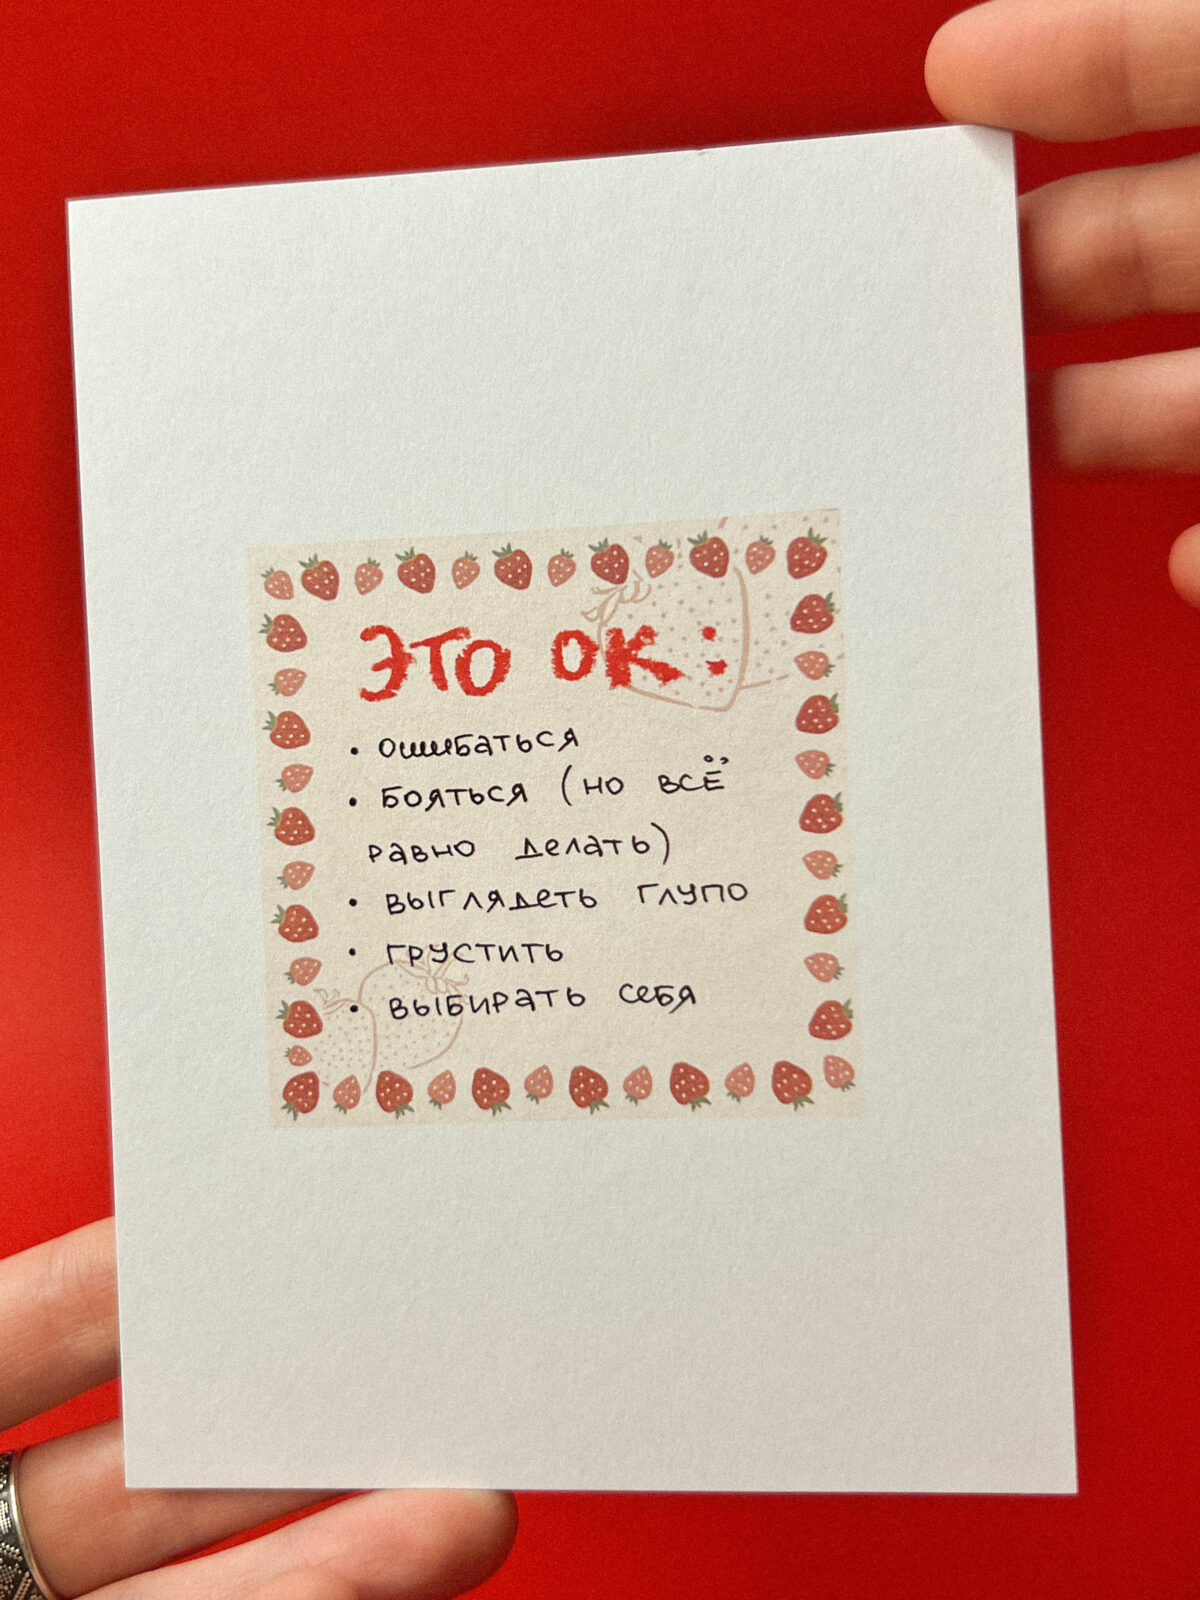 ЭТО ОК:
• ошибаться
• бояться (но всё
равно делать)
• выглядеть глупо
• грустить
• выбирать себя